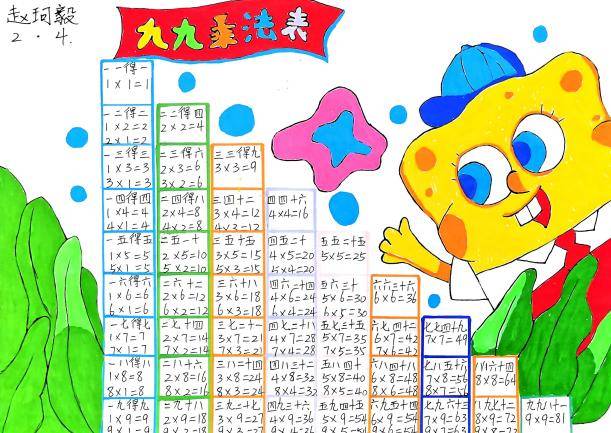 赵珂毅
2．4．
九九乘法表
一一得一
1×1=1
一二得二 二二得四
1×2=2 2×2=4
2×1=2
一三得三 二三得六 三三得九
1×3=3 2×3=6 3×3=9
3×1=3 3×2=6
一四得四 二四得八 三四十二 四四十六
1×4=4 2×4=8 3×4=12 4×4=16
4×1=4 4×2=8 4×3=12
一五得五 二五一十 三五十五 四五二十 五五二十五
1×5=5 2×5=10 3×5=15 4×5=20 5×5=25
5×1=5 5×2=10 5×3=15 5×4=20
一六得六 二六十二 三六十八 四六二十四 五六三十 六六三十六
1×6=6 2×6=12 3×6=18 4×6=24 5×6=30 6×6=36
6×1=6 6×2=12 6×3=18 6×4=24 6×5=30
一七得七 二七十四 三七二十一 四七二十八 五七三十五 六七四十二 七七四十九
1×7=7 2×7=14 3×7=21 4×7=28 5×7=35 6×7=42 7×7=49
7×1=7 7×2=14 7×3=21 7×4=28 7×5=35 7×6=42
一八得八 二八十六 三八二十四 四八三十二 五八四十 六八四十八 七八五十六 八八六十四
1×8=8 2×8=16 3×8=24 4×8=32 5×8=40 6×8=48 7×8=56 8×8=64
8×1=8 8×2=16 8×3=24 8×4=32 8×5=40 8×6=48 8×7=56
一九得九 二九十八 三九二十七 四九三十六 五九四十五 六九五十四 七九六十三 八九七十二 九九八十一
1×9=9 2×9=18 3×9=27 4×9=36 5×9=45 6×9=54 7×9=63 8×9=72 9×9=81